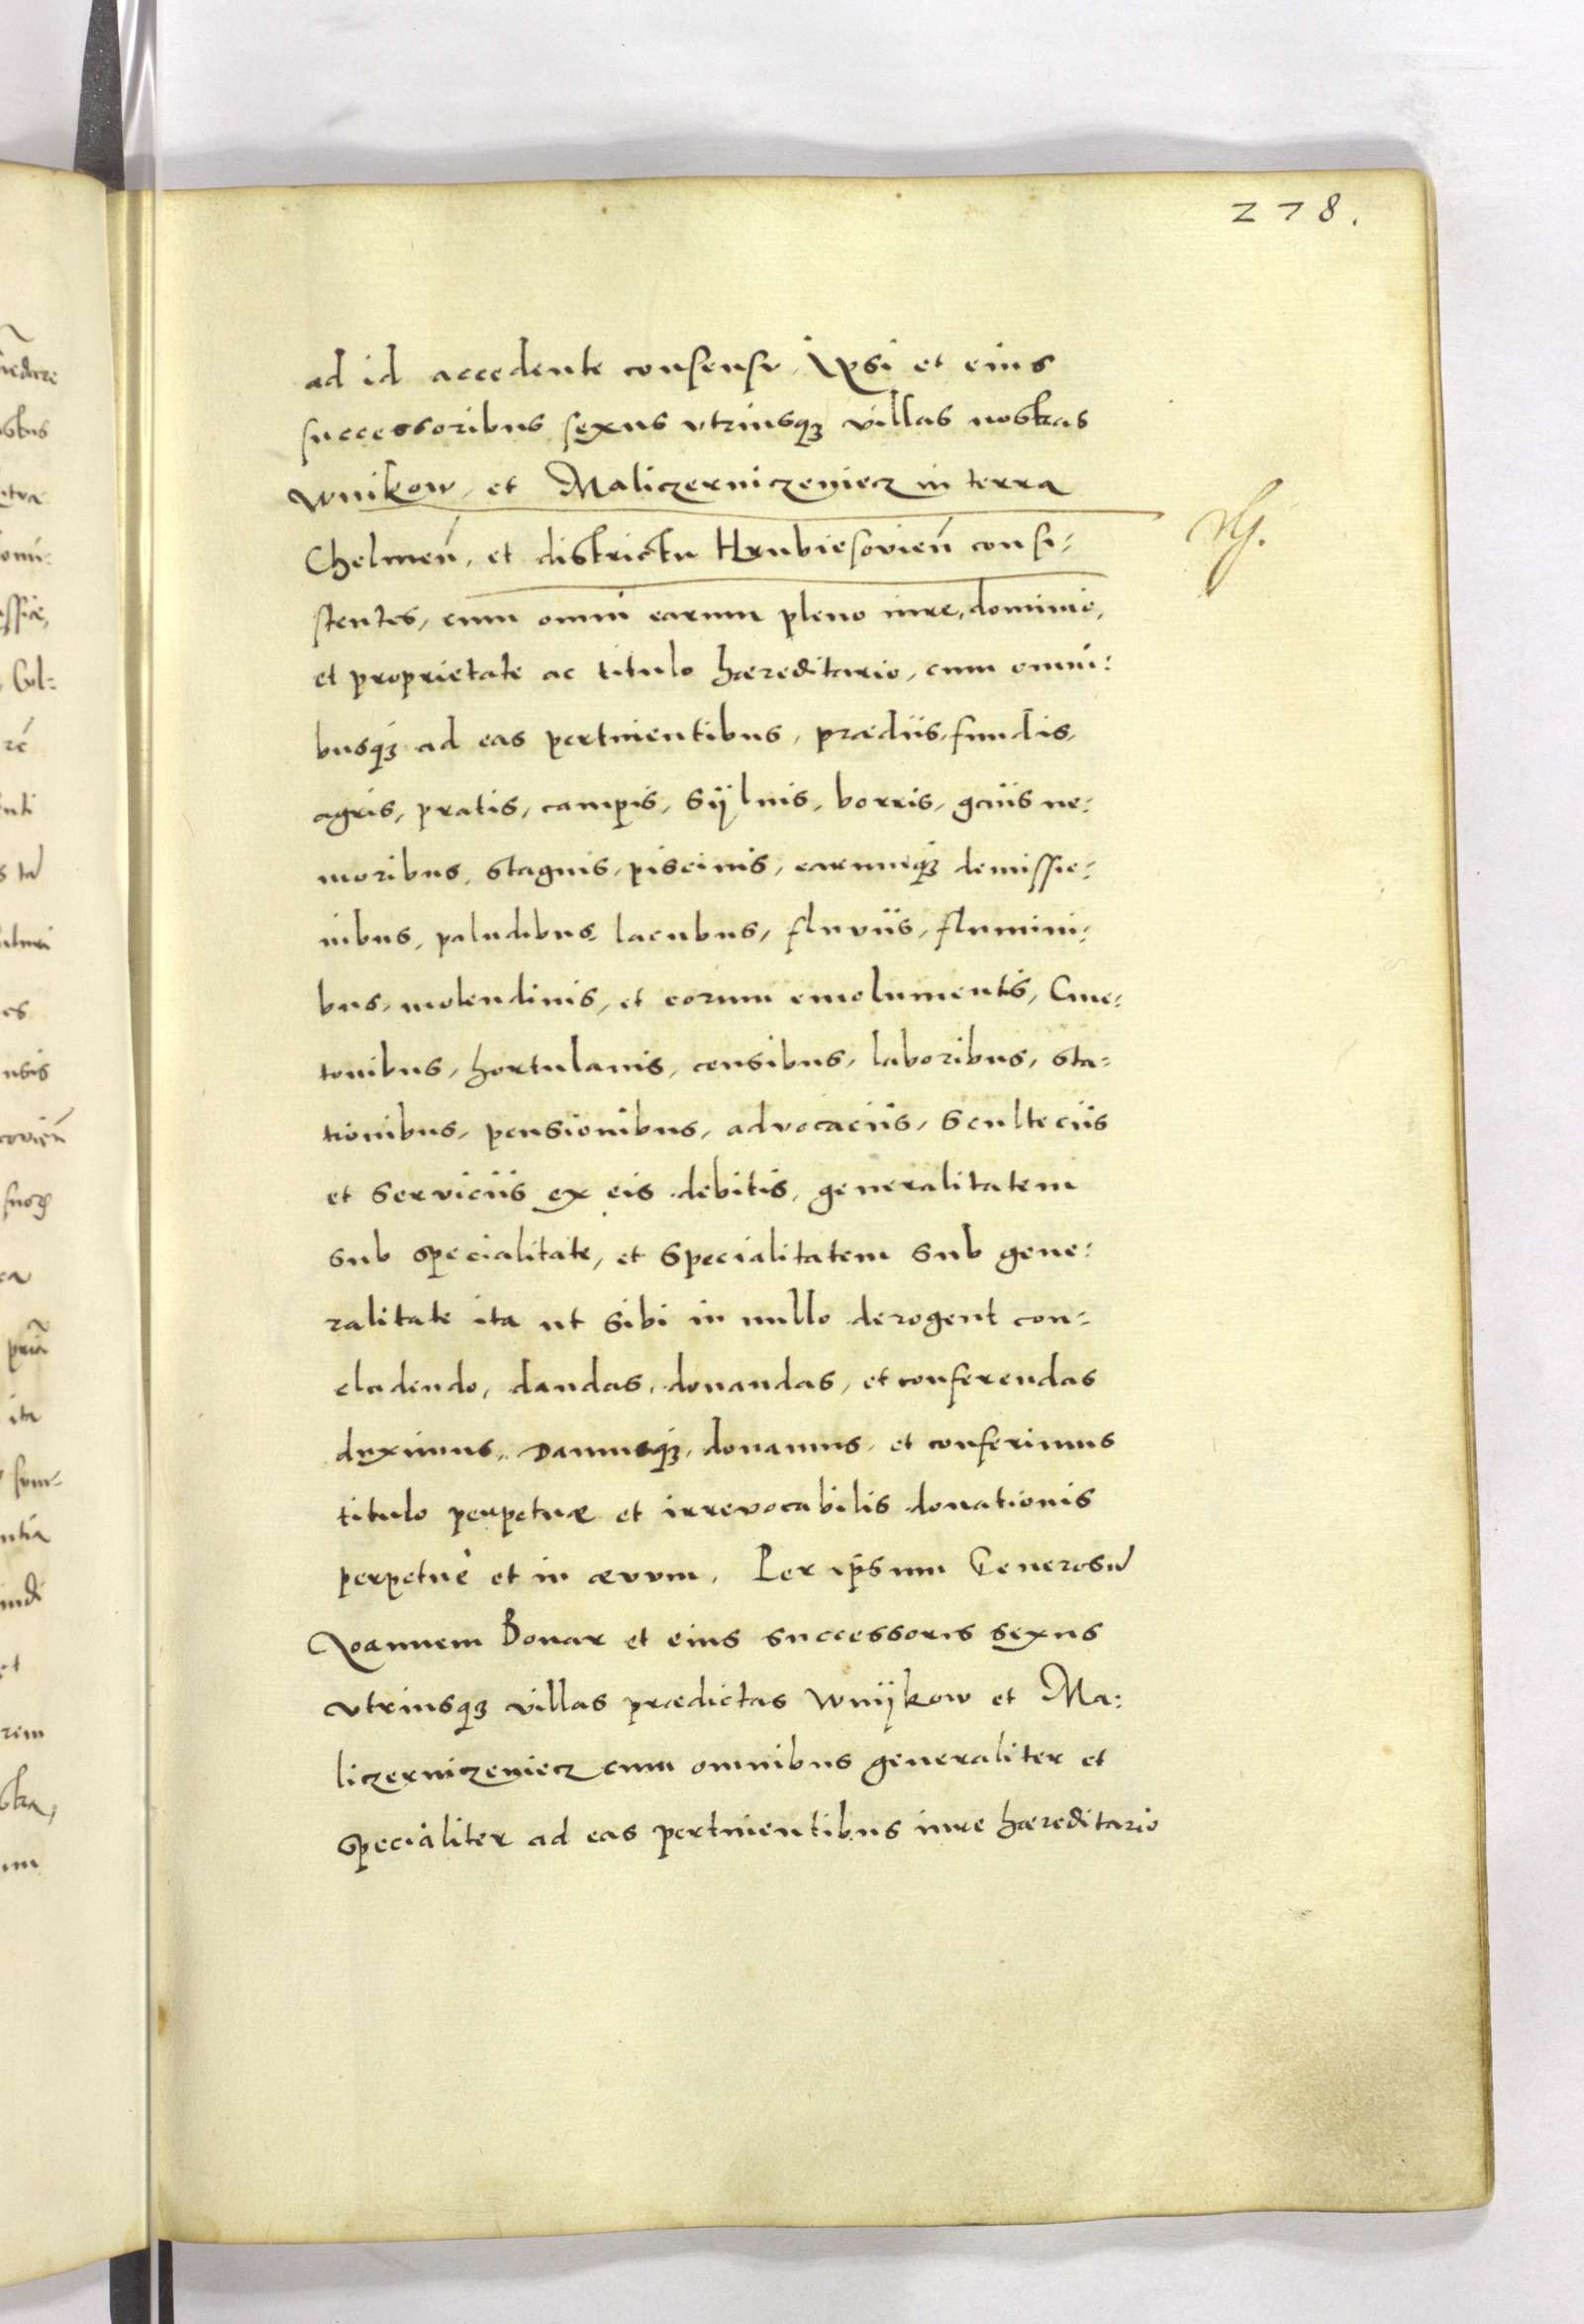 278.
ad id accedente consensu, Ipsi et eius
successoribus sexus vtriusqз villas nostras
Wnikow, et Maliczerniczeyiecz in terra
Chelmeń, et districtu Hrubiesovień consi:
stentes, cum omni earum pleno iure, dominio,
et proprietate ac titulo hæreditario, cum omni:
busqз ad eas pertinentibus, prædiis, fundis,
agris, pratis, campis, sÿluis, borris, gaiis ne:
moribus, stagnis, piscinis, earumqз demissio:
nibus, paludibus, lacubus, fluviis, flumini:
bus, molendinis, et eorum emolumentis, Cme:
tonibus, hortulanis, censibus, laboribus, sta:
tionibus, pensionibus, advocaciis, Sculteciis
et serviciis ex eis debitis, generalitatem
sub specialitate, et specialitatem sub gene:
ralitate ita ut sibi in nullo derogent con:
cludendo, dandas, donandas, et conferendas
duximus, Damusqз, donamus, et conferimus
titulo perpetuæ et irrevocabilis donationis
perpetuè et in ævum, Per ipsum Generosū
Ioannem Bonar et eius successoris sexus
vtriusqз villas prædictas Wnÿkow et Ma:
liczerniczeyiecz cum omnibus generaliter et
specialiter ad eas pertinentibus iure hæreditario